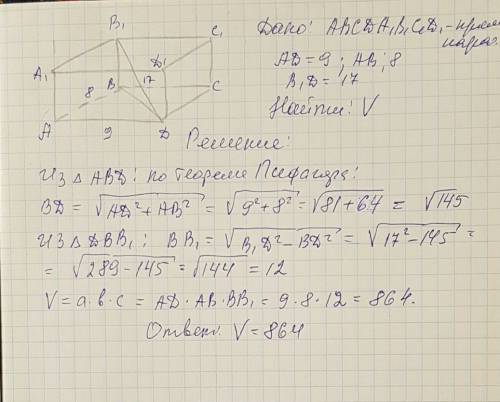 B₁ C₁
A₁ D₁
8 B 17 C
A 9 D
Дано: ABCDA₁B₁C₁D₁ -
AD = 9; AB; 8
B₁D = 17
Найти: V
Решение:
Из △ ABD: по теореме Пифагора:
BD = √AD²+AB² = √9²+8² = √81+64 = √145
Из △ DBB₁; BB₁ = √B₁D²-BD² = √17²-145 =
= √289-145 = √144 = 12
V = a·b·c = AD·AB·BB₁ = 9·8·12 = 864.
Ответ. V = 864